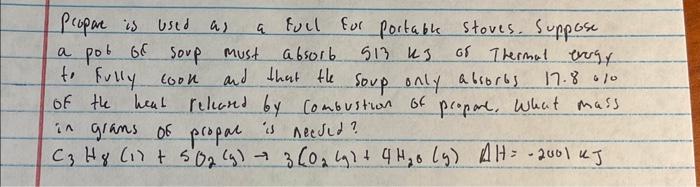 Propane is used as a fuel for portable stoves. Suppose
a pot of soup must absorb 513 kJ of Thermal energy
to fully cook and that the soup only absorbs 17.8 %
of the heat released by combustion of propane. What mass
in grams of propane is needed?
C3 H8 (l) + 5O2 (g) → 3CO2 (g) + 4H2O (g) ΔH= -2001 kJ